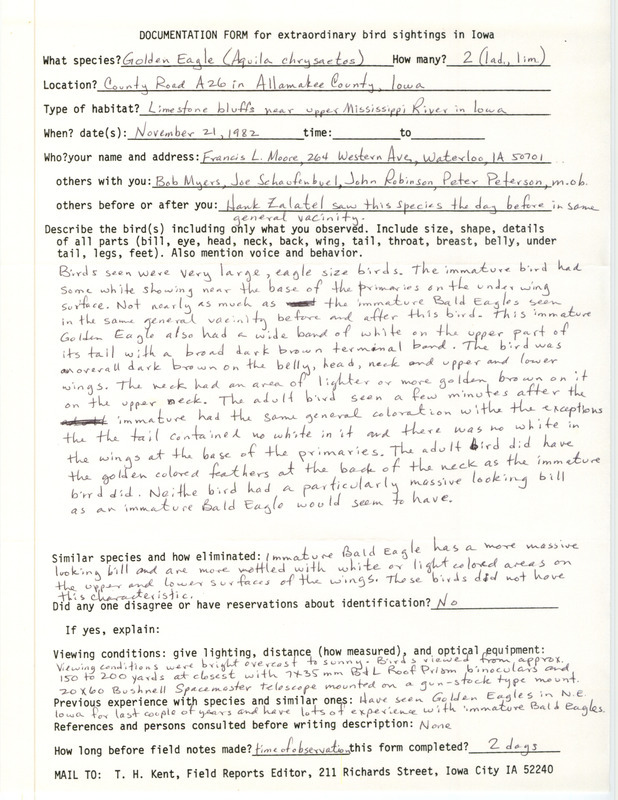 DOCUMENTATION FORM for extraordinary bird sightings in Iowa
What species? Golden Eagle (Aquila chrysaetos) How many? 2 (1ad., 1im.)
Location? County Road A26 in Allamakee County, Iowa
Type of habitat? Limestone bluffs near upper Mississippi River in Iowa
When? date(s): November 21, 1982 time: to
Who? your name and address: Francis L. Moore, 264 Western Ave, Waterloo, IA 50701
others with you: Bob Myers, Joe Schaufenbuel, John Robinson, Peter Peterson, m.ob.
others before or after you: Hank Zalatel saw this species the day before in same
general vacinity.
Describe the bird(s) including only what you observed. Include size, shape, details
of all parts (bill, eye, head, neck, back, wing, tail, throat, breast, belly, under
tail, legs, feet). Also mention voice and behavior.
Birds seen were very large, eagle size birds. The immature bird had
some white showing near the base of the primaries on the under wing
surface. Not nearly as much as the immature Bald Eagles seen
in the same general vacinity before and after this bird. This immature
Golden Eagle also had a wide band of white on the upper part of
its tail with a broad dark brown terminal band. The bird was
an overall dark brown on the belly, head, neck and upper and lower
wings. The neck had an area of lighter or more golden brown on it
on the upper neck. The adult bird seen a few minutes after the
immature had the same general coloration withe the exceptions
the the tail contained no white in it and there was no white in
the wings at the base of the primaries. The adult bird did have
the golden colored feathers at the back of the neck as the immature
birrd did. Neithe bird had a particularly massive looking bill
as an immature Bald Eagle would seem to have.
Similar species and how eliminated: Immature Bald Eagle has a more massive
looking bill and are more mottled with white or light colored areas on
the upper and lower surfaces of the wings. These birds did not have
this characteristic.
Did any one disagree or have reservations about identification? No
If yes, explain:
Viewing conditions: give lighting, distance (how measured), and optical equipment:
Viewing conditions were bright overcast to sunny. Birds viewed from approx.
150 to 200 yards at closest with 7X35mm B&L Roof Prism binoculars and
20X60 Bushnell Spacemaster telescope mounted on a gun-stock type mount.
Previous experience with species and similar ones: Have seen Golden Eagles in N.E.
Iowa for last couple of years and have lots of experience with immature Bald Eagles.
References and persons consulted before writing description: None
How long before field notes made? time of observation this form completed? 2 days
MAIL TO: T. H. Kent, Field Reports Editor, 211 Richards Street, Iowa City IA 52240